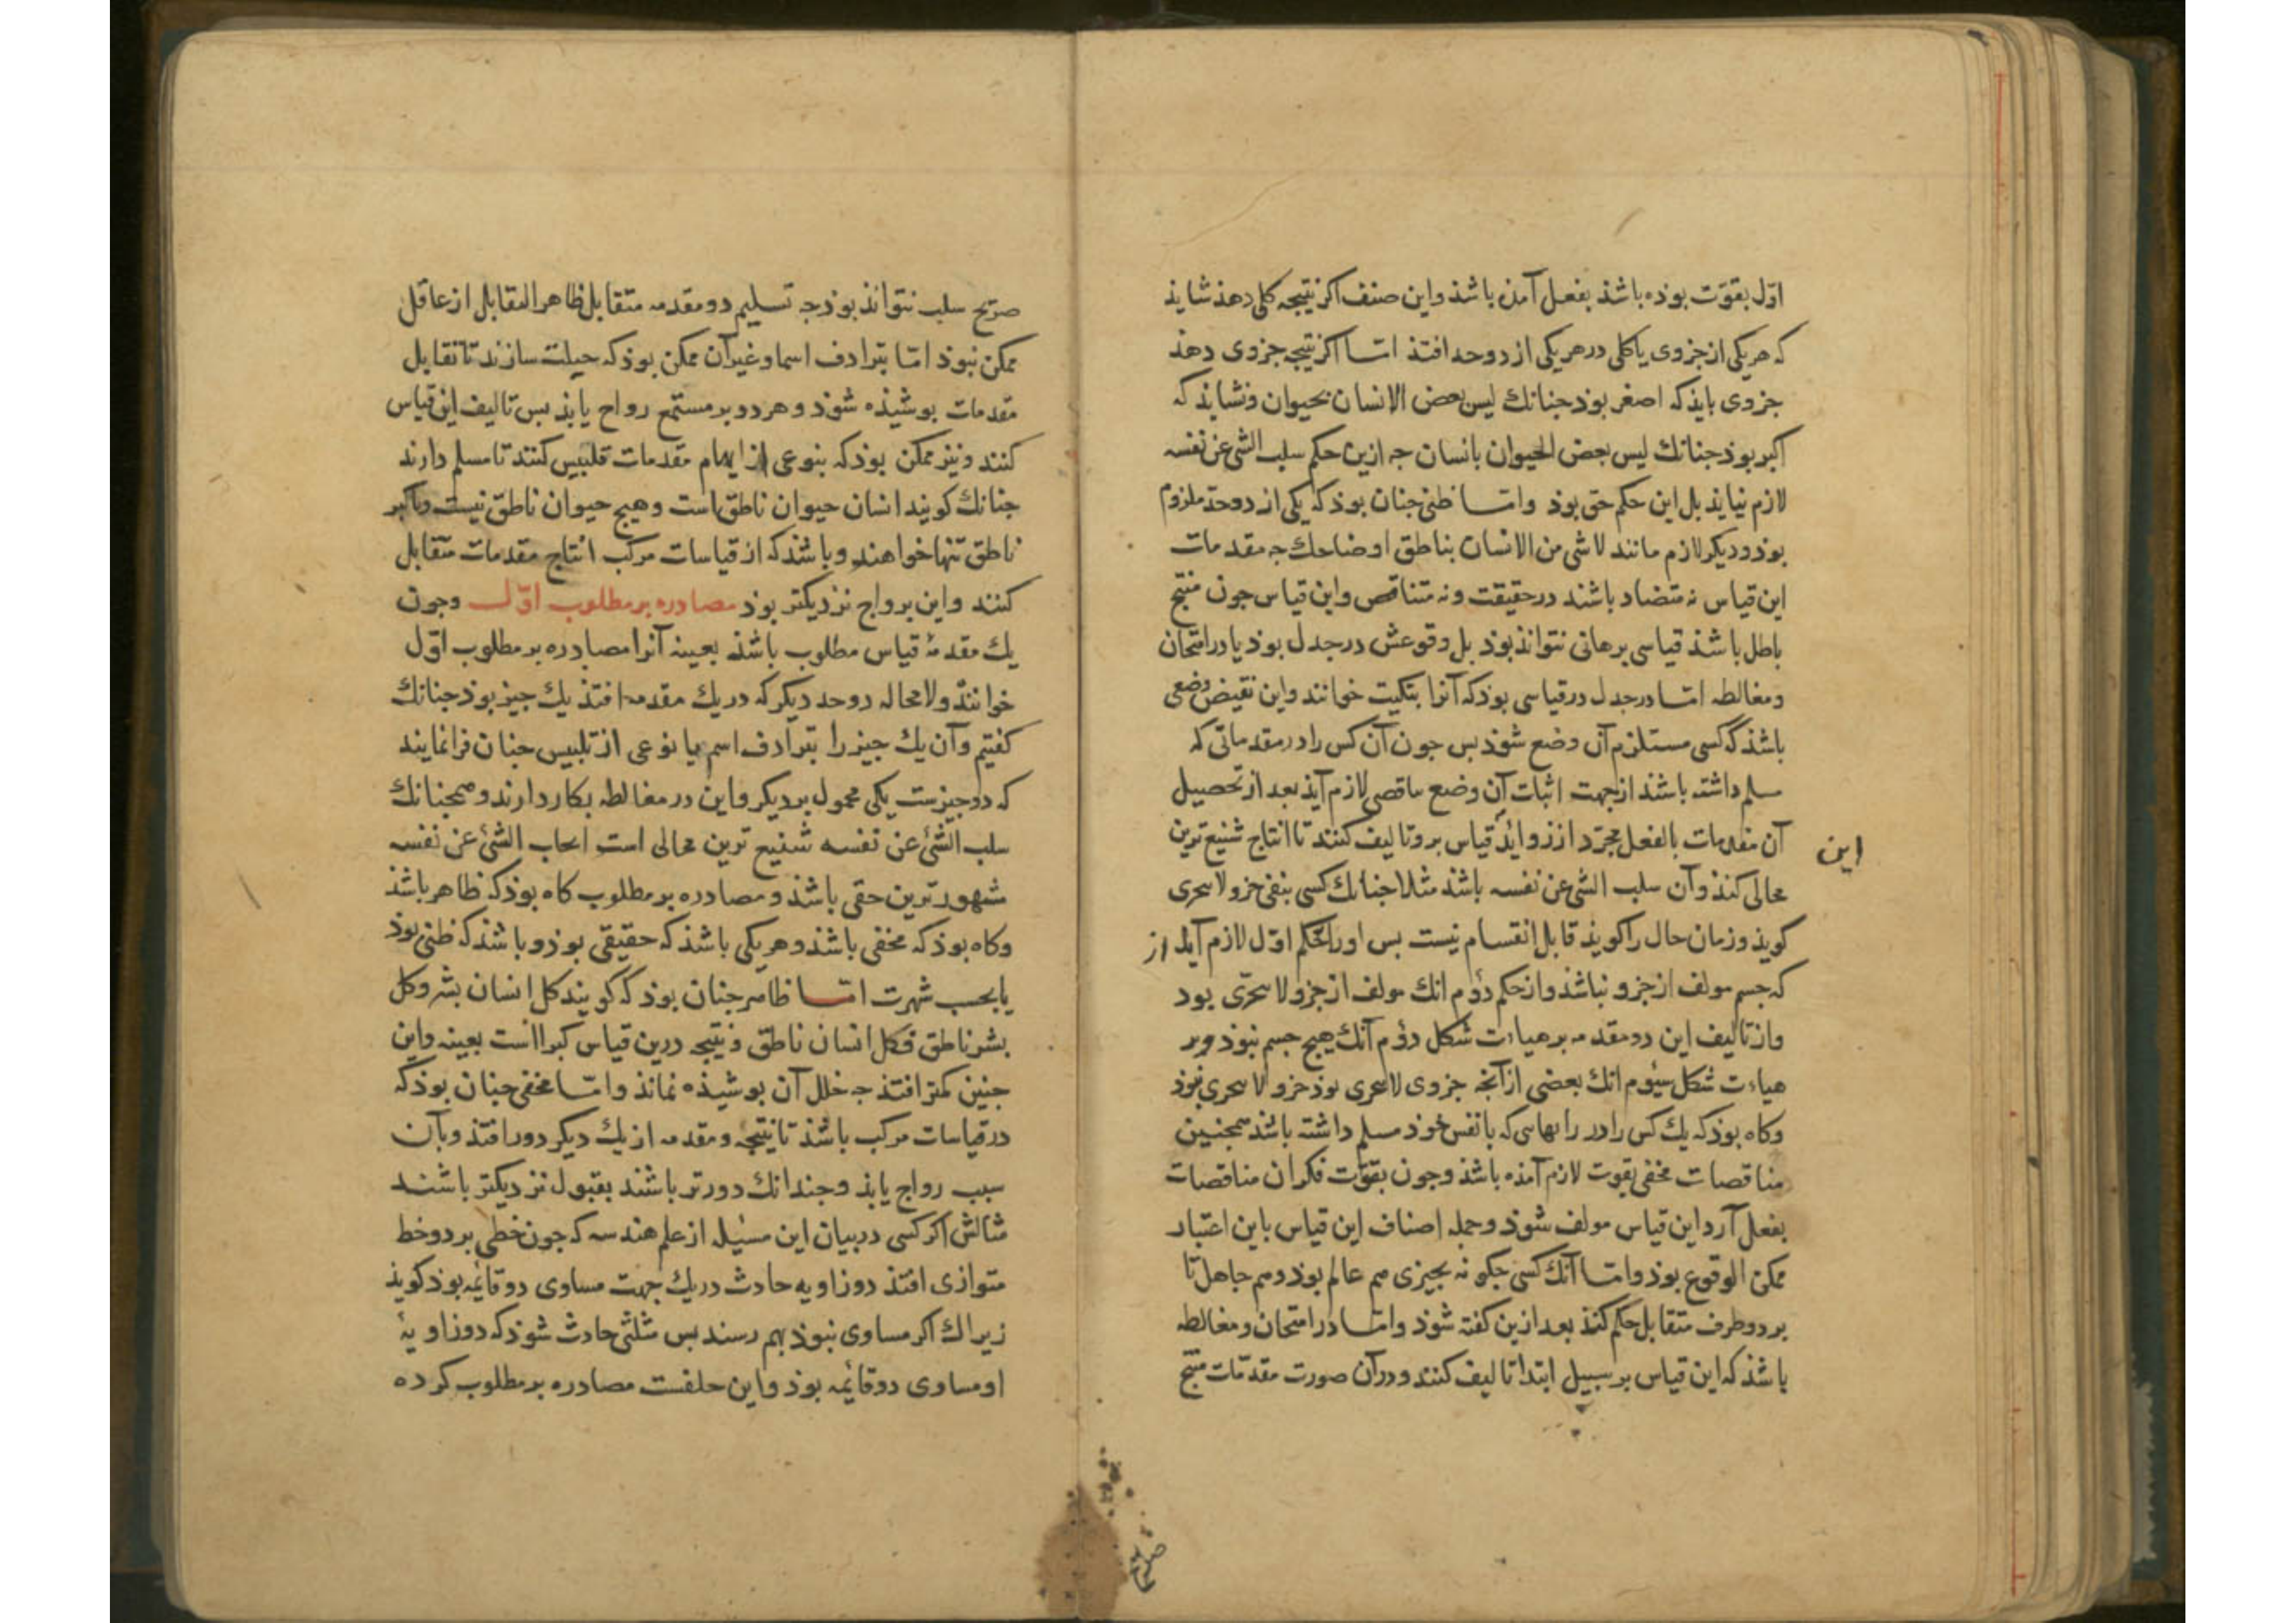 اوّل بقوّت بوده باشذ بفعل آمذه باشذ واین صنف اکر نتیجه کلی دهذ شایذ
که هریکی از جزوی یا کلی در هریکی از دو حد افتذ امّا اکر نتیجه جزوی دهذ
جزوی بایذ که اصغر بوذ جنانك لیس بعض الانسان بحیوان ونشایذ که
اکبر بوذ جنانك لیس بعض الحیوان بانسان جه ازین حکم سلب الشی عن نفسه
لازم نیایذ بل این حکم حق بوذ وامّا ظنی جنان بوذ که یکی از دو حد ملزوم
بوذ ودیکر لازم مانند لاشی من الانسان بناطق او ضاحك جه مقدمات
این قیاس نه متضاد باشند در حقیقت ونه متناقص واین قیاس جون منتج
باطل باشذ قیاسی برهانی نتوانذ بوذ بل وقوعش در جدل بوذ یا در امتحان
ومغالطه امّا در جدل در قیاسی بوذ که آنرا بتکیت خوانند واین نقیض وضعی
باشذ که کسی مستلزم آن وضع شوذ بس جون آن کس را در مقدماتی که
مسلم داشته باشند از جهت اثبات آن وضع مناقصی لازم آیذ بعد از تحصیل
آن مقدمات بالفعل مجرّد از زوایذ قیاس برو تالیف کنند تا انتاج شنیع ترین
این
محالی کنذ وآن سلب الشی عن نفسه باشذ مثلا جنانك کسی بنفی جزو لا یتجزی
کویذ وزمان حال را کویذ قابل انقسام نیست بس اورا از حکم اوّل لازم آید
که جسم مولف از جزو نباشذ واز حکم دوم انك مولف از جزو لا یتجزی بود
واز تالیف این دو مقدمه بر هیاءت شکل دوم آنك هیچ جسم نبوذ وبر
هیاءت شکل سیوم انك بعضی از آنجه جزوی لا یتجزی بوذ جزو لا یتجزی نبوذ
وکاه بوذ که یك کس را در رایهایی که با نفس خوذ مسلم داشته باشذ همجنین
مناقصات مخفی بقوت لازم آمذه باشذ وجون بقوّت فکر آن مناقصات
بفعل آرد این قیاس مولف شوذ وجمله اصناف این قیاس باین اعتبار
ممکن الوقوع بوذ وامّا آنك کسی جکونه بجیزی هم عالم بوذ وهم جاهل تا
بر دو طرف متقابل حکم کنذ بعد ازین کفته شوذ وامّا در امتحان ومغالطه
باشذ که این قیاس بر سبیل ابتدا تالیف کنند ودر آن صورت مقدّمات منتج
صریح
صریح سلب نتوانذ بوذ جه تسلیم دو مقدمه متقابل ظاهر التقابل از عاقل
ممکن نبوذ امّا بترادف اسما وغیر آن ممکن بوذ که حیلت سازند تا تقابل
مقدمات بوشیذه شوذ وهر دو بر مستمع رواج یابذ بس تالیف این قیاس
کنند ونیز ممکن بوذ که بنوعی از ایهام مقدمات تلبیس کنند تا مسلم دارند
جنانك کویند انسان حیوان ناطق است وهیچ حیوان ناطق نیست وباکبر
ناطق تنها خواهند وباشذ که از قیاسات مرکب انتاج مقدمات متقابل
کنند واین برواج نزدیکتر بوذ مصادره بر مطلوب اوّل وجون
یك مقدمهٔ قیاس مطلوب باشذ بعینه آنرا مصادره بر مطلوب اوّل
خوانند ولا محاله دو حد دیکر که در یك مقدمه افتذ یك جیز بوذ جنانك
کفتیم وآن یك جیز را بترادف اسم یا نوعی از تلبیس جنان فرا نمایند
که دو جیزست یکی محمول بر دیکر واین در مغالطه بکار دارند وهمجنانك
سلب الشئ عن نفسه شنیع ترین محالی است ایجاب الشئ عن نفسه
مشهورترین حقی باشذ ومصادره بر مطلوب کاه بوذ که ظاهر باشذ
وکاه بوذ که مخفی باشذ وهریکی باشذ که حقیقی بوذ وباشذ که ظنی بوذ
یا بحسب شهرت امّا ظاهر جنان بوذ که کویند کل انسان بشر وکل
بشر ناطق فکل انسان ناطق ونتیجه درین قیاس کبراا نست بعینه واین
جنین کمتر افتذ جه خلل آن بوشیذه نماند وامّا مخفی جنان بوذ که
در قیاسات مرکب باشذ تا نتیجه ومقدمه از یك دیکر دور افتذ وبآن
سبب رواج یابذ وجندانك دورتر باشند بقبول نزدیکتر باشند
مثالش اکر کسی در بیان این مسئله از علم هندسه که جون خطی بر دو خط
متوازی افتذ دو زاویه حادث در یك جهت مساوی دو قائمه بوذ کویذ
زیراك اکر مساوی نبوذ بهم رسند بس مثلثی حادث شوذ که دو زاویهٔ
او مساوی دو قائمه بوذ واین خلفست مصادره بر مطلوب کرده